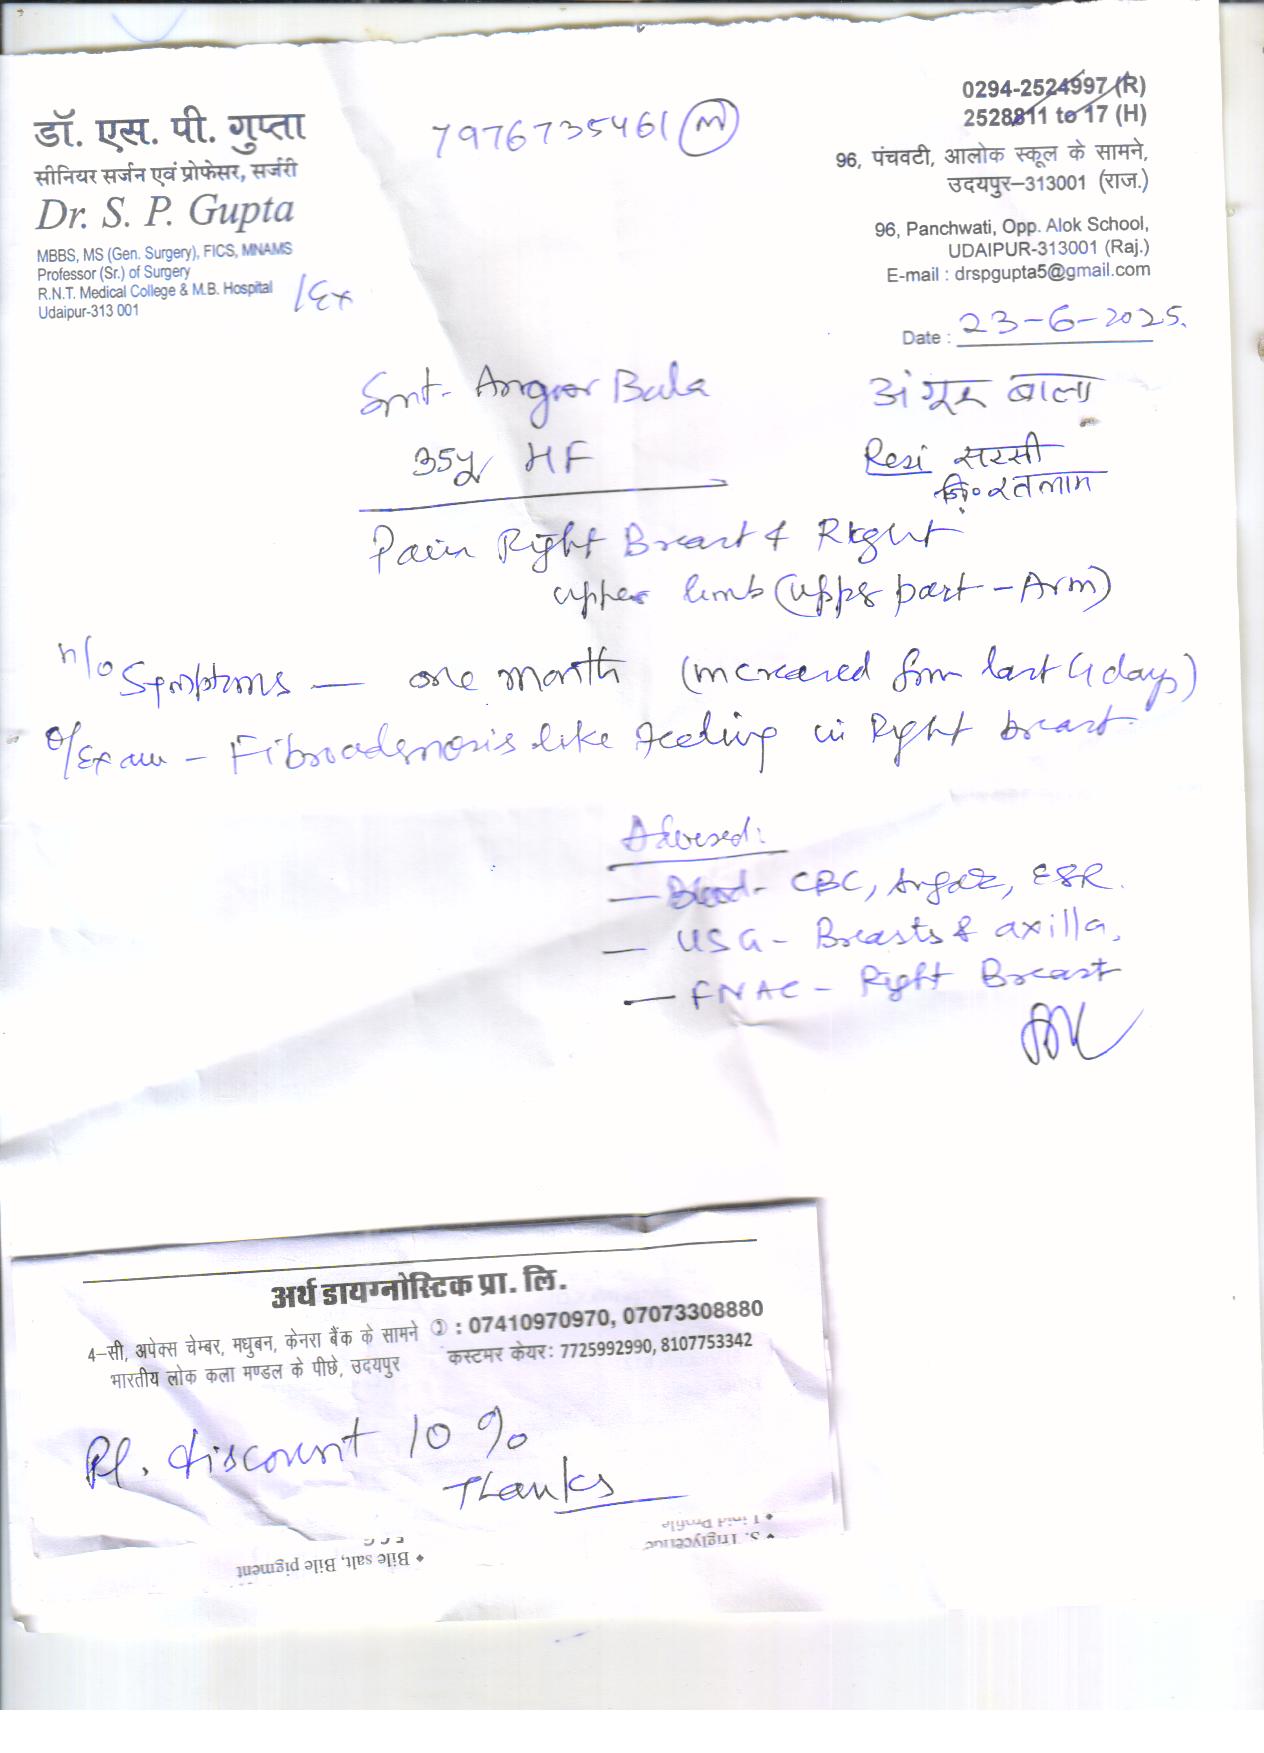 डॉ. एस. पी. गुप्ता
सीनियर सर्जन एवं प्रोफेसर, सर्जरी
Dr. S. P. Gupta
MBBS, MS (Gen. Surgery), FICS, MNAMS
Professor (Sr.) of Surgery
R.N.T. Medical College & M.B. Hospital
Udaipur-313 001
/Ex
7976735461 (M)
0294-2524997 (R)
2528811 to 17 (H)
96, पंचवटी, आलोक स्कूल के सामने,
उदयपुर–313001 (राज.)
96, Panchwati, Opp. Alok School,
UDAIPUR-313001 (Raj.)
E-mail : drspgupta5@gmail.com
Date : 23-6-2025.
Smt- Angoor Bala
अंगूर बाला
35y HF
Resi सरसी
जि० रतलाम
Pain Right Breast & Right
upper limb (upper part - Arm)
H/o Symptoms — one month (increased from last 4 days)
O/Exam - Fibroadenosis like feeling in Right breast
Advised:
— Blood - CBC, , ESR.
— USG - Breasts & axilla,
— FNAC - Right Breast
अर्थ डायग्नोस्टिक प्रा. लि.
4–सी, अपेक्स चेम्बर, मधुबन, केनरा बैंक के सामने
भारतीय लोक कला मण्डल के पीछे, उदयपुर
: 07410970970, 07073308880
कस्टमर केयर: 7725992990, 8107753342
Pl. discount 10 %
Thanks
• Lipid Profile
• S. Triglyceride
• Bile salt, Bile pigment